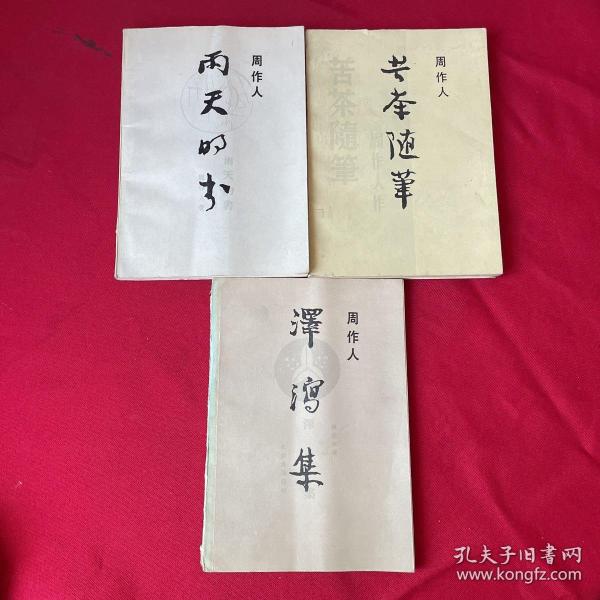 周作人
雨天的书
周作人
苦茶随筆
苦茶随筆
周作人
澤瀉集
孔夫子旧书网
www.kongfz.com